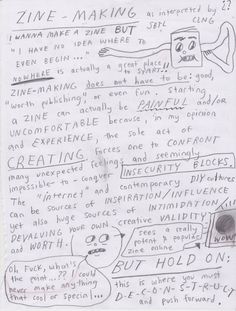 ZINE-MAKING as interpreted by
SBTL CLNG
I WANNA MAKE A ZINE BUT
"I HAVE NO IDEA WHERE TO
EVEN BEGIN..."
NOWHERE is actually a great place
to START!
ZINE-MAKING does not have to be: good,
"worth publishing" or even fun. Starting
a ZINE can actually be PAINFUL and/or
UNCOMFORTABLE because, in my opinion
and EXPERIENCE, the sole act of
CREATING forces one to CONFRONT
many unexpected feelings and seemingly
impossible-to-conquer INSECURITY BLOCKS.
The "internet" and contemporary DIY cultures
can be sources of INSPIRATION/INFLUENCE
yet also huge sources of INTIMIDATION,
DEVALUING YOUR OWN creative VALIDITY
and WORTH.
sees a really
potent & popular
zine online
WOW!
Oh Fuck, what's
the point...?? I could
never make anything
that cool or special...
BUT HOLD ON:
this is where you must
D-E-C-O-N-S-T-R-U-C-T
and push forward.